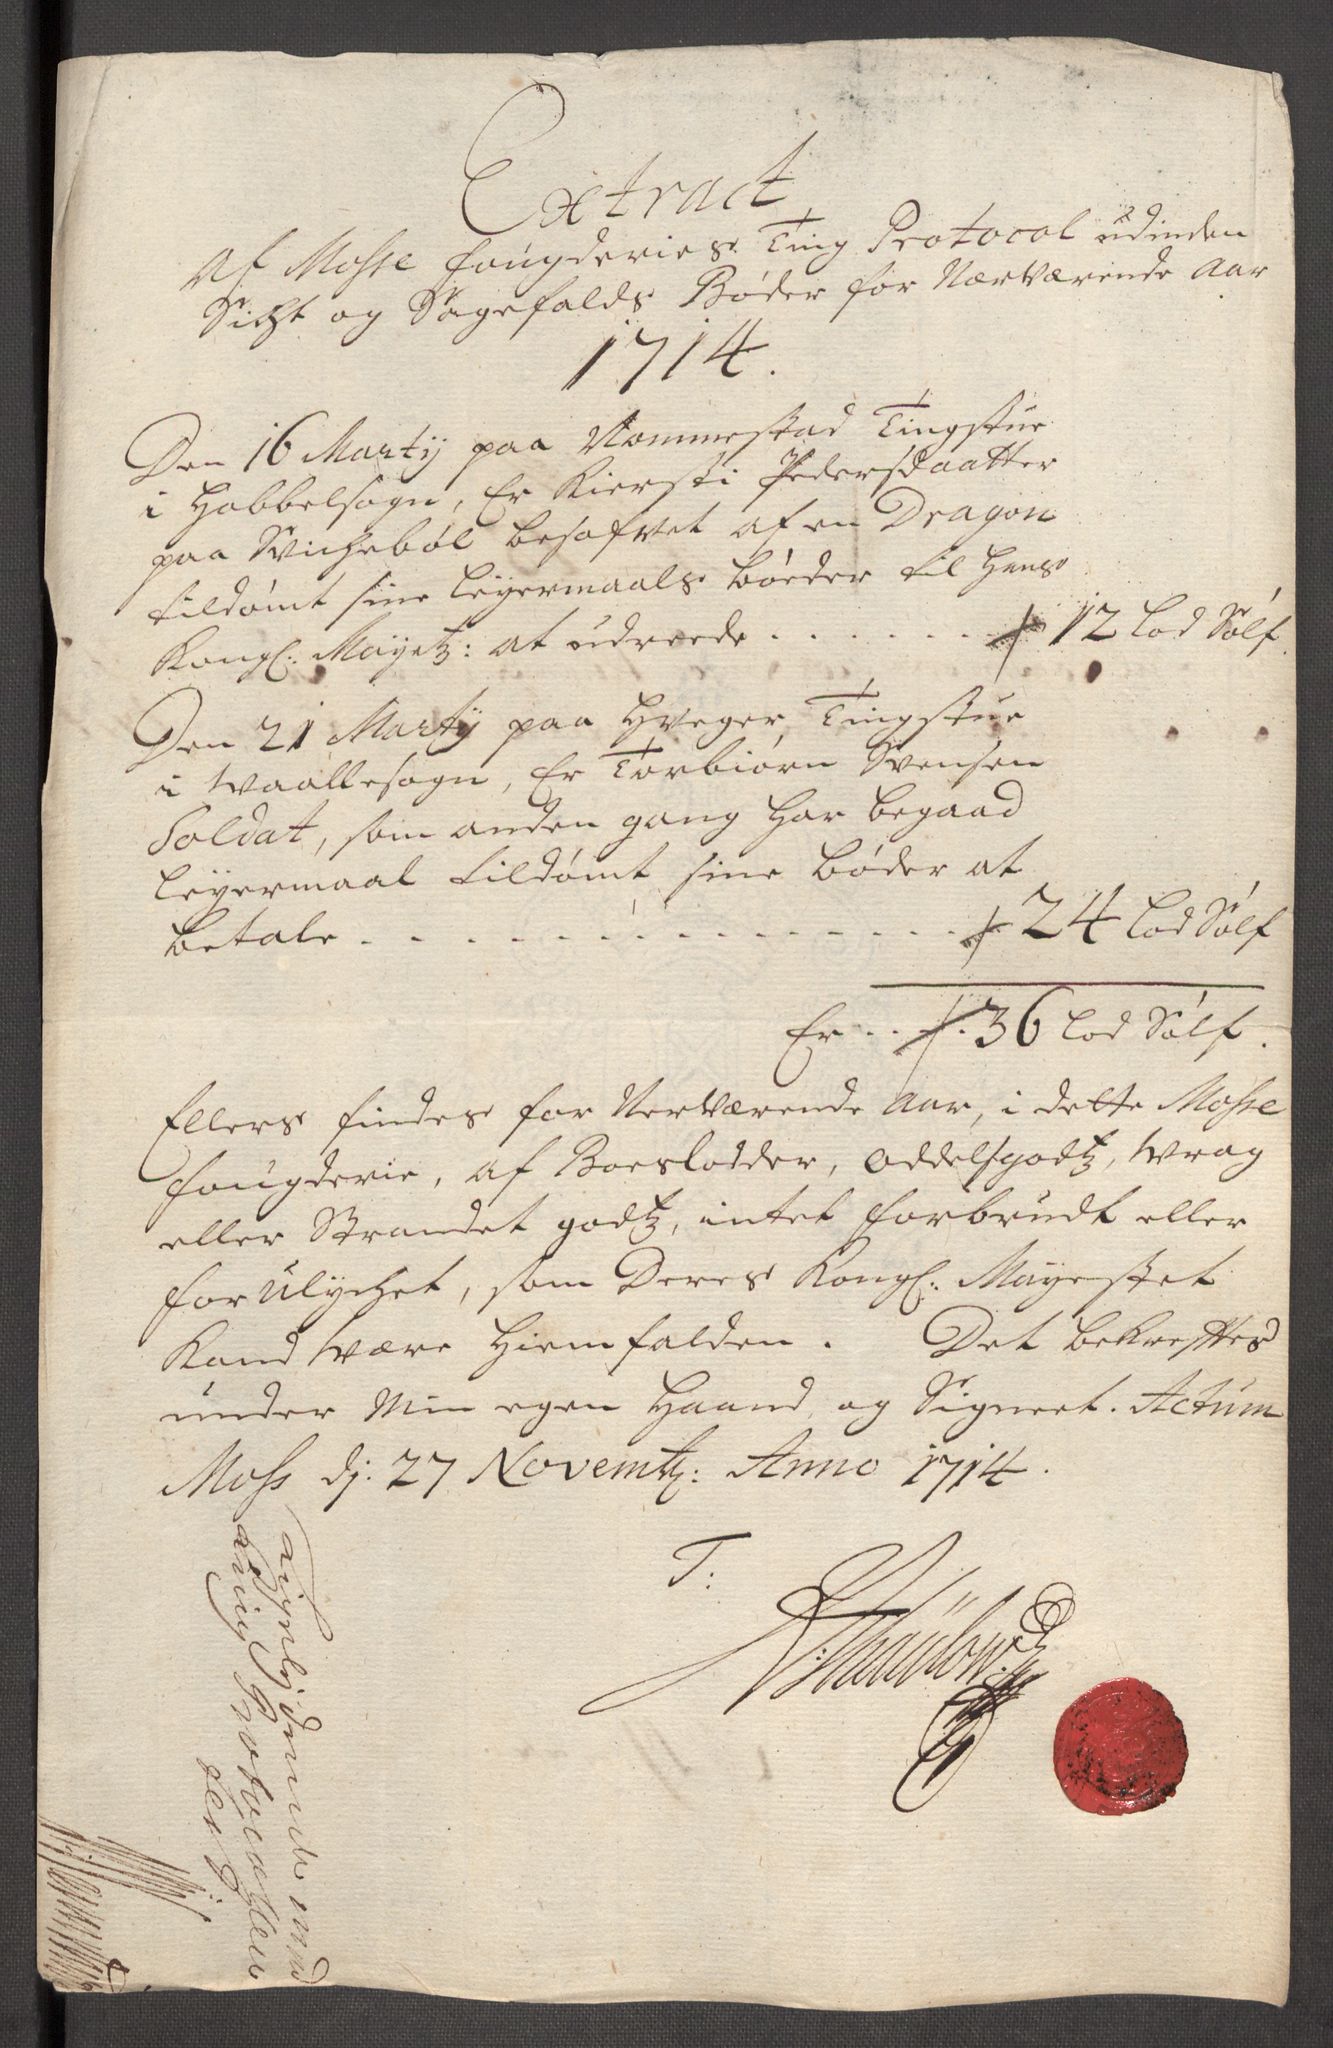 Extract
Af Mosse fougderies Ting Protocol udinden
Sigt og Sagefalds Bøder for Nærværende Aar
1714.
Den 16 Martij paa Nommestad Tingstue
i Hobbelsogn, Er Kiersti Pedersdaatter
paa Svichebøl besofvet af en Dragon
tildømt sine leyermaals bøeder til hans
Kongl: Mayetz: at udreede . . . . . . . 12 Lod Sølf.
Den 21 Martij paa Hveger Tingstue
i Waallesogn, Er Torbiørn Svensen
Soldat, som anden gang har begaad
leyermaal tildømt sine bøder at
betale . . . . . . . . . . . . . . 24 Lod Sølf
Er . . . 36 Lod Sølf.
Ellers findes for Nerværende Aar, i dette Mosse
fougderie, af Boeslodder, oddelsgodtz, wrag
eller Strandet godtz, intet forbrudt eller
forulychet, som Deres Kongl: Mayestet
Kand være hiemfalden. Det bekreffter
under Min egen Haand og Signeet. Actum
Moss dj: 27 Novembr: Anno 1714.
T:
rigtig